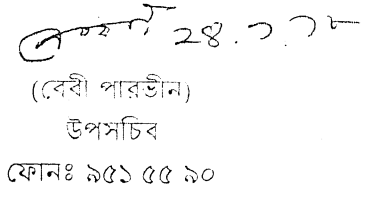 ২৪.১.১৮
(বেবী পারভীন)
উপসচিব
ফোনঃ ৯৫১ ৫৫ ৯০